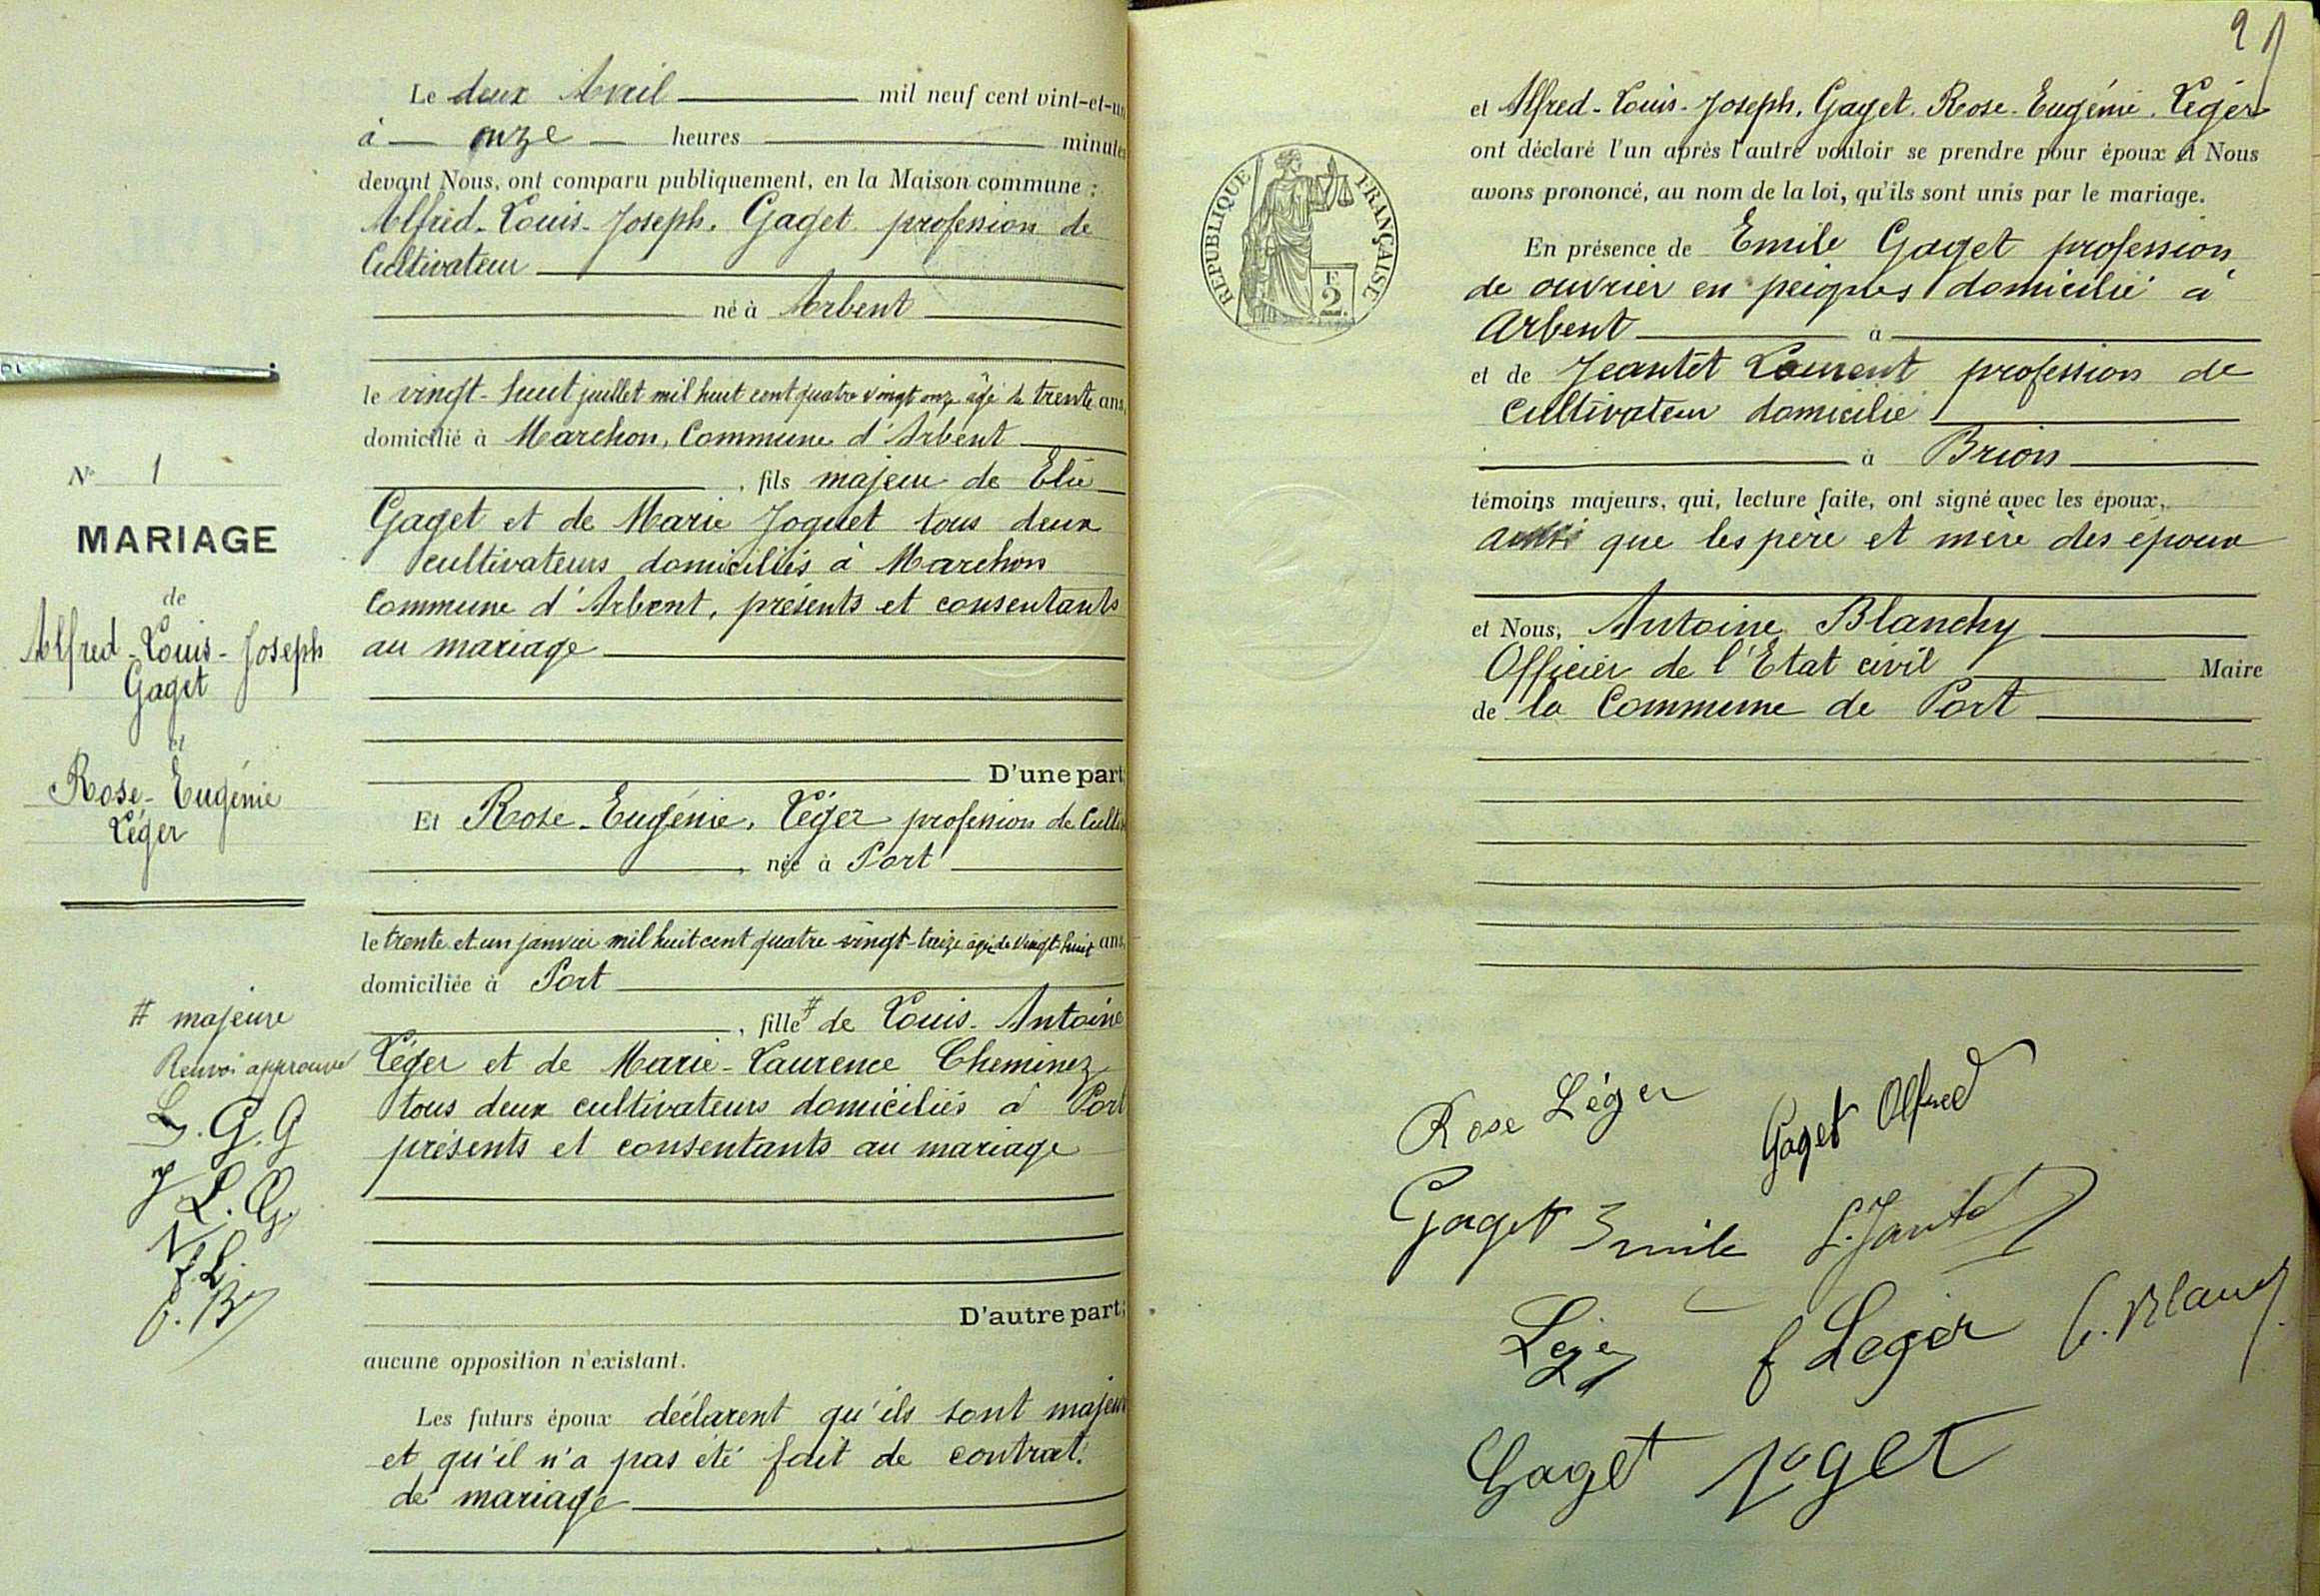 N° 1
MARIAGE
de
Alfred-Louis-Joseph
Gaget
et
Rose-Eugénie
Léger
# majeure
Renvoi approuvé
L. G. G
J L. G.
f. L.
Le deux Avril mil neuf cent vint-et-un
à onze heures minutes
devant Nous, ont comparu publiquement, en la Maison commune :
Alfred-Louis-Joseph. Gaget profession de
Cultivateur
né à Arbent
le vingt-huit juillet mil huit cent quatre vingt onze âgé de trente ans,
domicilié à Marchon, Commune d'Arbent
, fils majeur de Elie
Gaget et de Marie Joguet tous deux
cultivateurs domiciliés à Marchon
Commune d'Arbent, présents et consentants
au mariage
D'une part;
Et Rose-Eugénie, Léger profession de Cultiv
, née à Port
le trente et un janvier mil huit cent quatre vingt-treize âgée de vingt-huit ans,
domiciliée à Port
, fille # de Louis-Antoine
Léger et de Marie-Laurence Cheminez
tous deux cultivateurs domiciliés à Port
présents et consentants au mariage
D'autre part;
aucune opposition n'existant.
Les futurs époux déclarent qu'ils sont majeurs
et qu'il n'a pas été fait de contrat
de mariage
RÉPUBLIQUE FRANÇAISE
F
2
et Alfred-Louis-Joseph, Gaget. Rose-Eugénie. Léger
ont déclaré l'un après l'autre vouloir se prendre pour époux et Nous
avons prononcé, au nom de la loi, qu'ils sont unis par le mariage.
En présence de Emile Gaget profession
de ouvrier en peignes domicilié à
Arbent à
et de Jeantet Laurent profession de
cultivateur domicilié
à Brion
témoins majeurs, qui, lecture faite, ont signé avec les époux,
que les père et mère des époux
et Nous, Antoine Blanchy
Officier de l'Etat civil Maire
de la Commune de Port
Rose Léger
Gaget Alfred
Gaget Emile
L. Jantet
Léger
f Leger
Gaget Joget